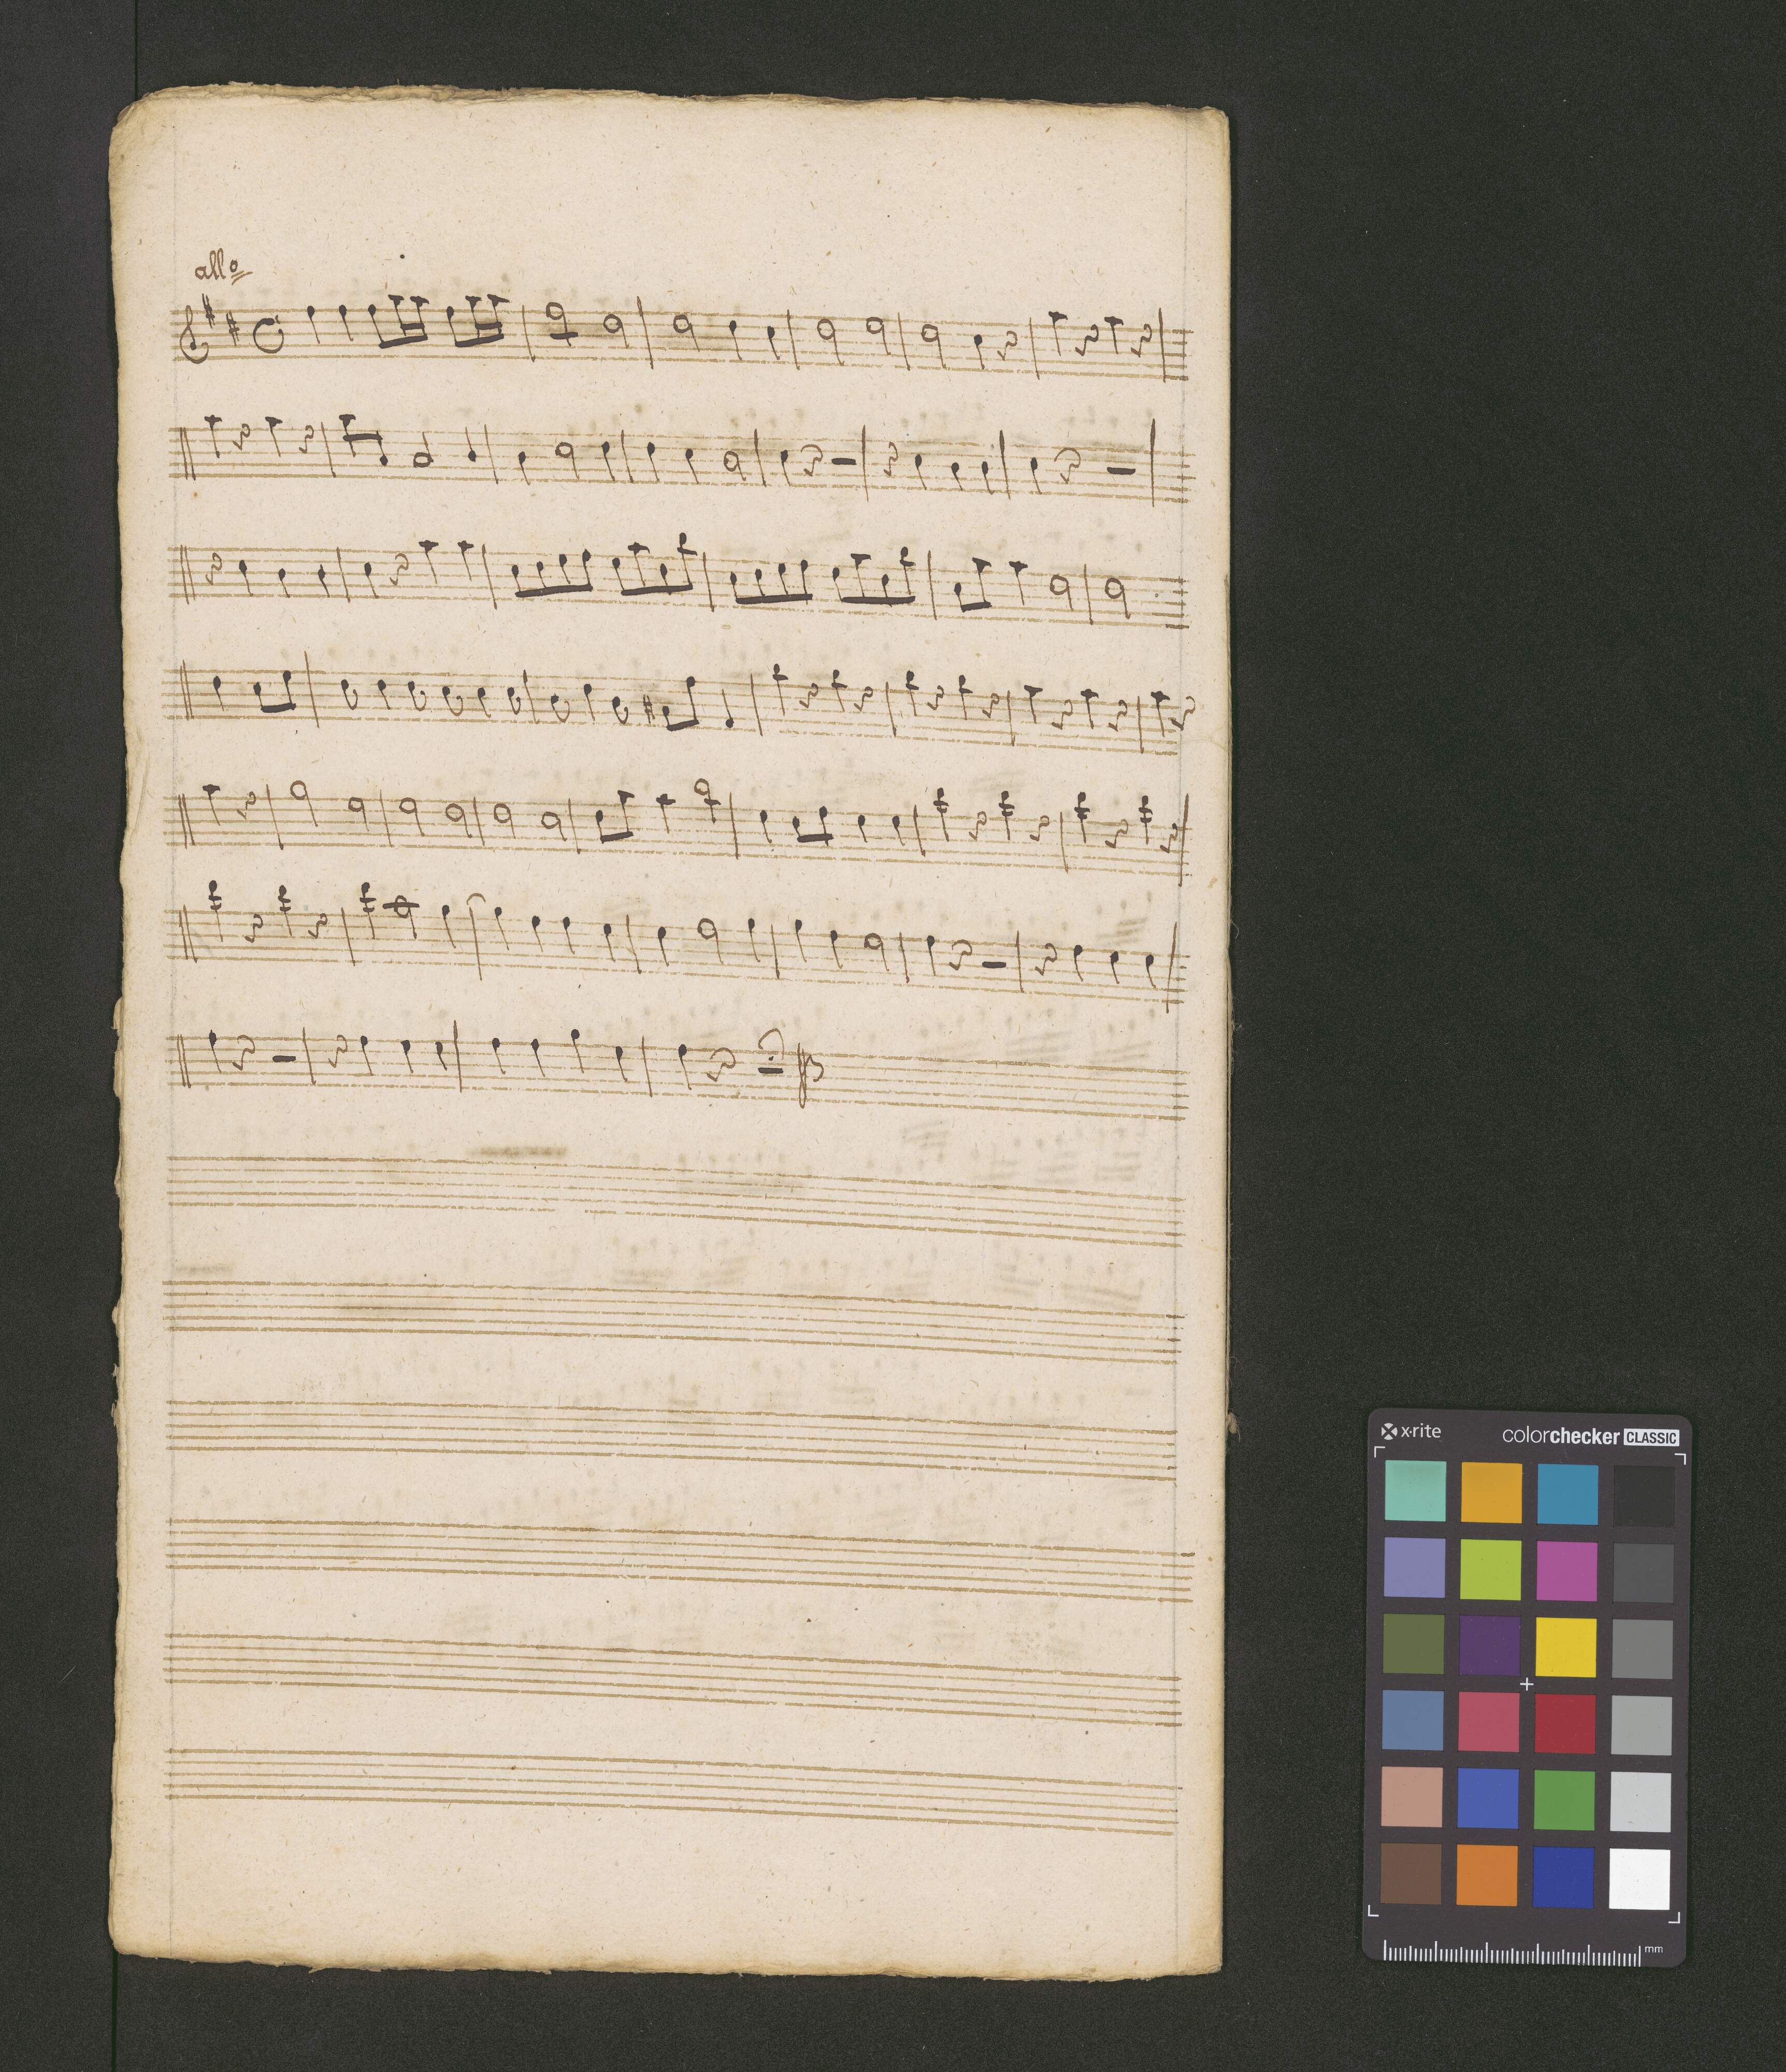 allo
x·rite
colorchecker CLASSIC
mm